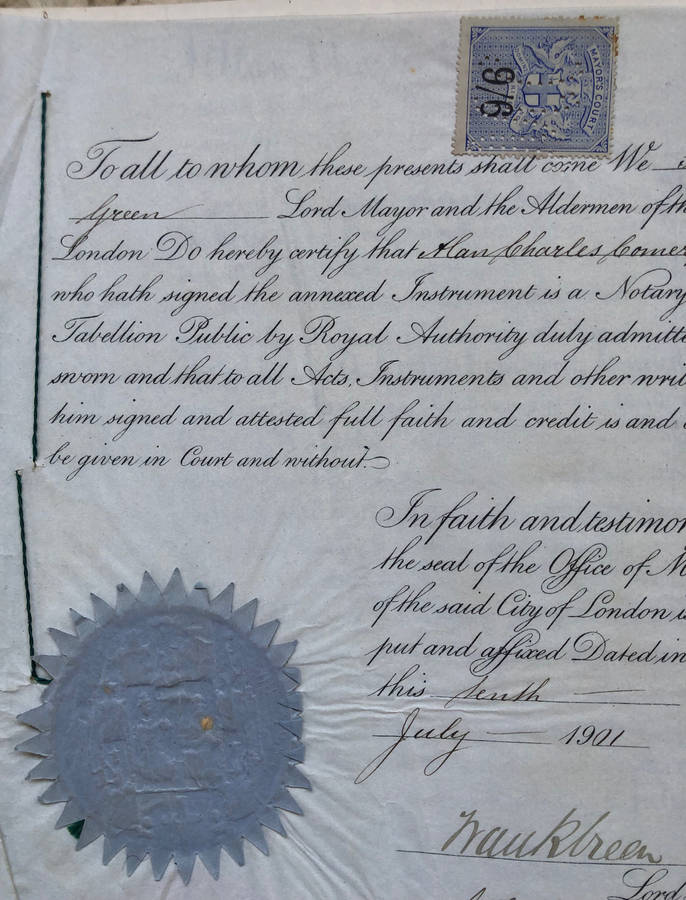 9/6
MAYOR'S COURT
To all to whom these presents shall come We
Green Lord Mayor and the Aldermen of th
London Do hereby certify that Alan Charles Comer
who hath signed the annexed Instrument is a Notary
Tabellion Public by Royal Authority duly admitte
sworn and that to all Acts, Instruments and other writ
him signed and attested full faith and credit is and
be given in Court and without.
In faith and testimon
the seal of the Office of M
of the said City of London
put and affixed Dated in
this tenth
July 1901
Frank Green
Lord